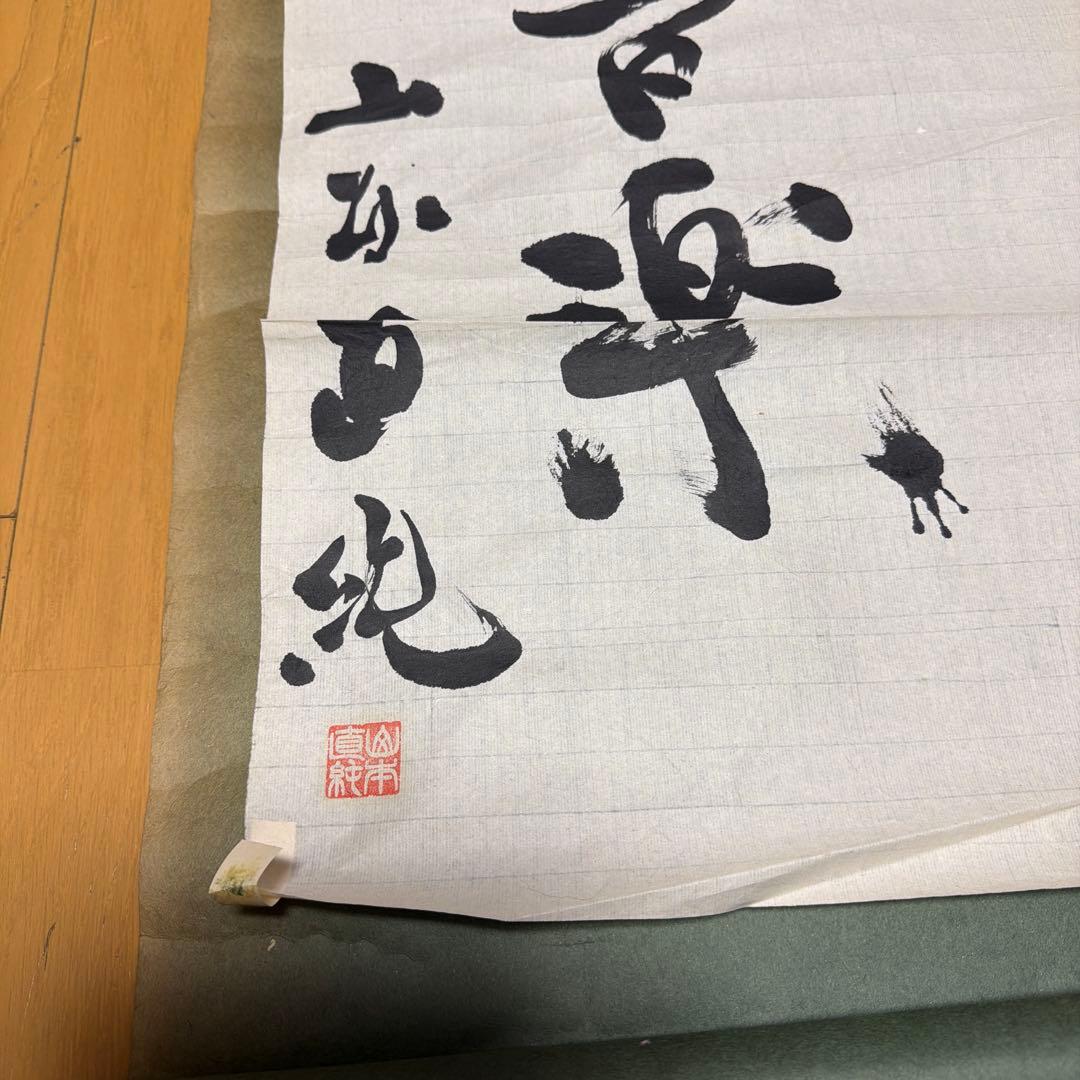 音楽
山本直純
山本
直純